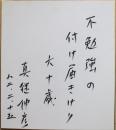 不勉強の
付け届きけり
六十歳
真継伸彦